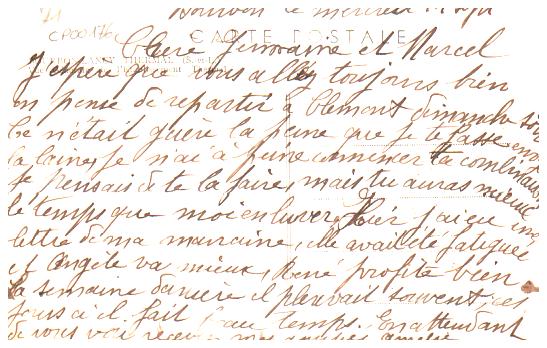 Bourbon le mercredi
CP00176
CARTE POSTALE
Chere Germaine et Marcel
J'espère que vous allez toujours bien
on pense de repartir à Clemont dimanche soir
Ce n'était guère la peine que je te fasse
la laine, je n'ai à peine commencer ta combinaison
je pensais de te la faire, mais tu auras mieux
le temps que moi en hiver, Hier j'ai eu une
lettre de ma marraine, elle avait été fatiguée
et Angèle va mieux, René profite bien
la semaine dernière il pleuvait souvent, ces
jours ci il fait beau temps. En attendant
de vous voir recevez nos amitiés